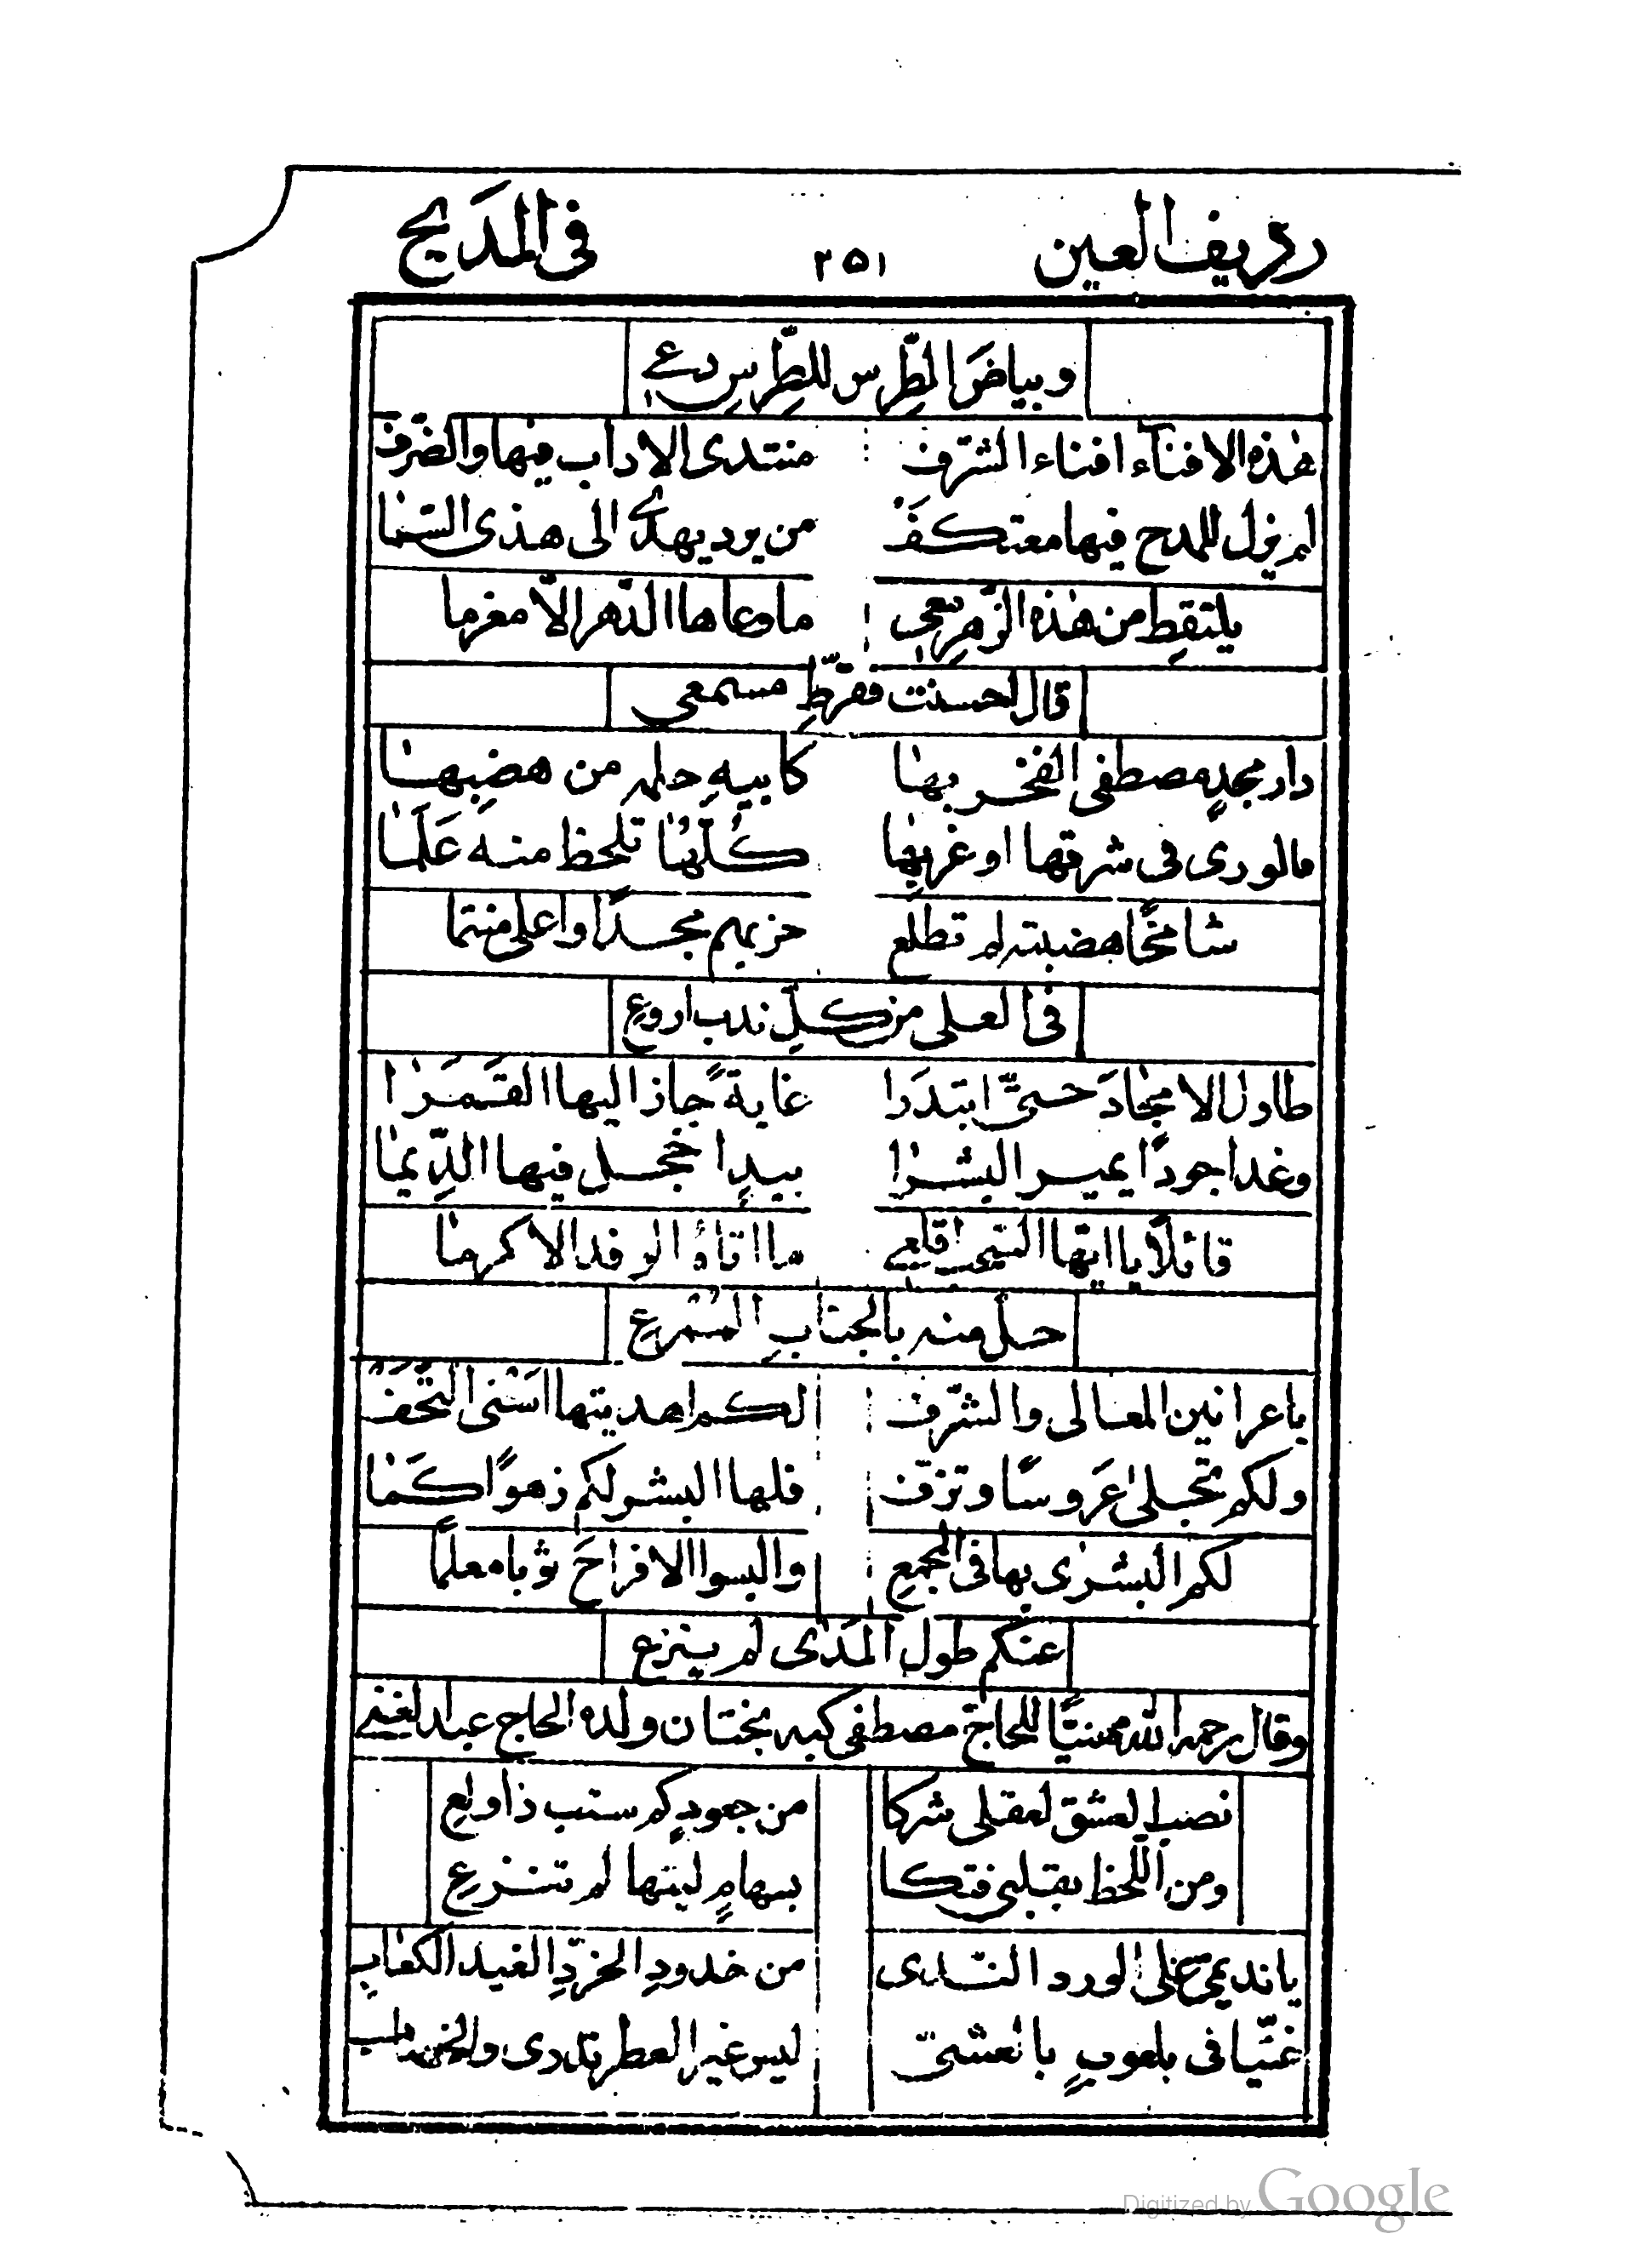 رديف العين ٢٥١ في المديح
وبياضَ الطِّرس للطِّرسِ دعي
هٰذه الافناء افناء الشرف منتدى الاداب فيها والضَرف
لم يزل للمدح فيها معتكف من يرد يهدى الى هذى السّما
يلتقطِ من هٰذه الزّهر يعي ما وعاها الدّهر الّا مغرما
قال احسنت فقرّطِ مسمعي
دار مجدٍ مصطفى الفخر بهٰا كابيهِ حلمه من هضبِهٰا
مالورى في شرقها او غربِهٰا كُلّهٰا تلحظ منه عَلَمٰا
شامخًا هضبته لم تطلع حزبهم مجدًا واعلى منتما
في العلى من كلِّ ندب اروع
طاول الامجٰادَ حتّى ابتدَرا غايةً جاز اليها القَمَرٰا
وغدا جودًا يمير البشرٰا بيدٍ اخجل فيها الدِّيمٰا
قائلًا يا ايّها السّحب اقلعي ما اتاهُ الوفد الا كرمٰا
حلّ منه بالجنابِ الممرعِ
يا عرانين المعالى والشرف لكم اهديتها اسَنى التُحَف
ولكم تجلىٰ عَروسًا وتزفّ فلها البشر لكم زهوًا كَمٰا
لكم البشرٰى بها في المجمع والبسوا الافراحَ ثوبا معلمًا
عنكم طول المَدٰى لم ينزع
وقال رحمه الله مهنيًّا للحاج مصطفى كبه بختان ولده الحاج عبد الغني
نصب العشق لعقلى شركا من جعودٍ كم سبت ذا ولع
ومن اللّحظ بقلبي فتكا بسهامٍ ليتها لم تنزع
يا نديميّ على الورد النّدى من خدودِ الخرّدِ الغيد الكعٰابِ
غنّيا في بلعوبٍ بالعشى ليس غير العطر تدرى والخضاب